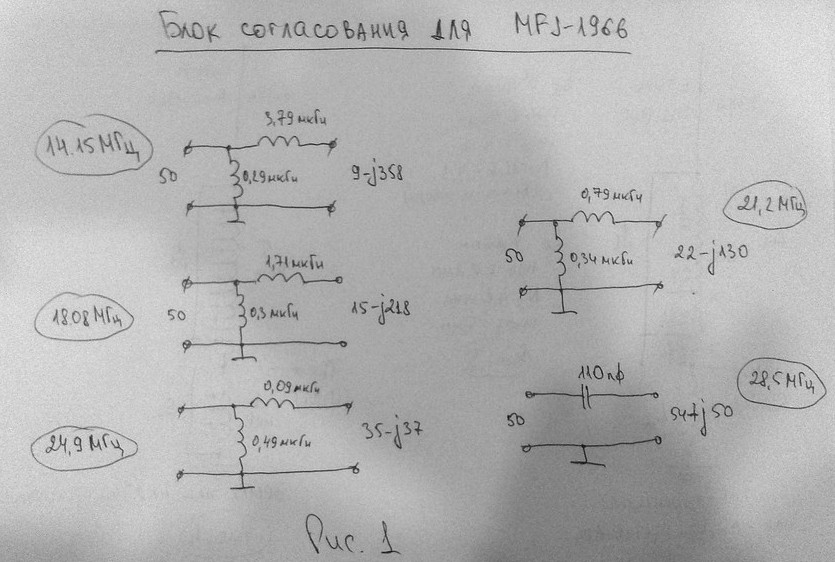 Блок согласования для MFJ-1966
14.15МГц
3,79мкГн
50
0,29мкГн
9-j358
21,2МГц
0,79мкГн
50
0,34мкГн
22-j130
18.08МГц
1,71мкГн
50
0,3мкГн
15-j218
28,5МГц
110пФ
50
54+j50
24,9МГц
0,09мкГн
0,49мкГн
35-j37
Рис. 1